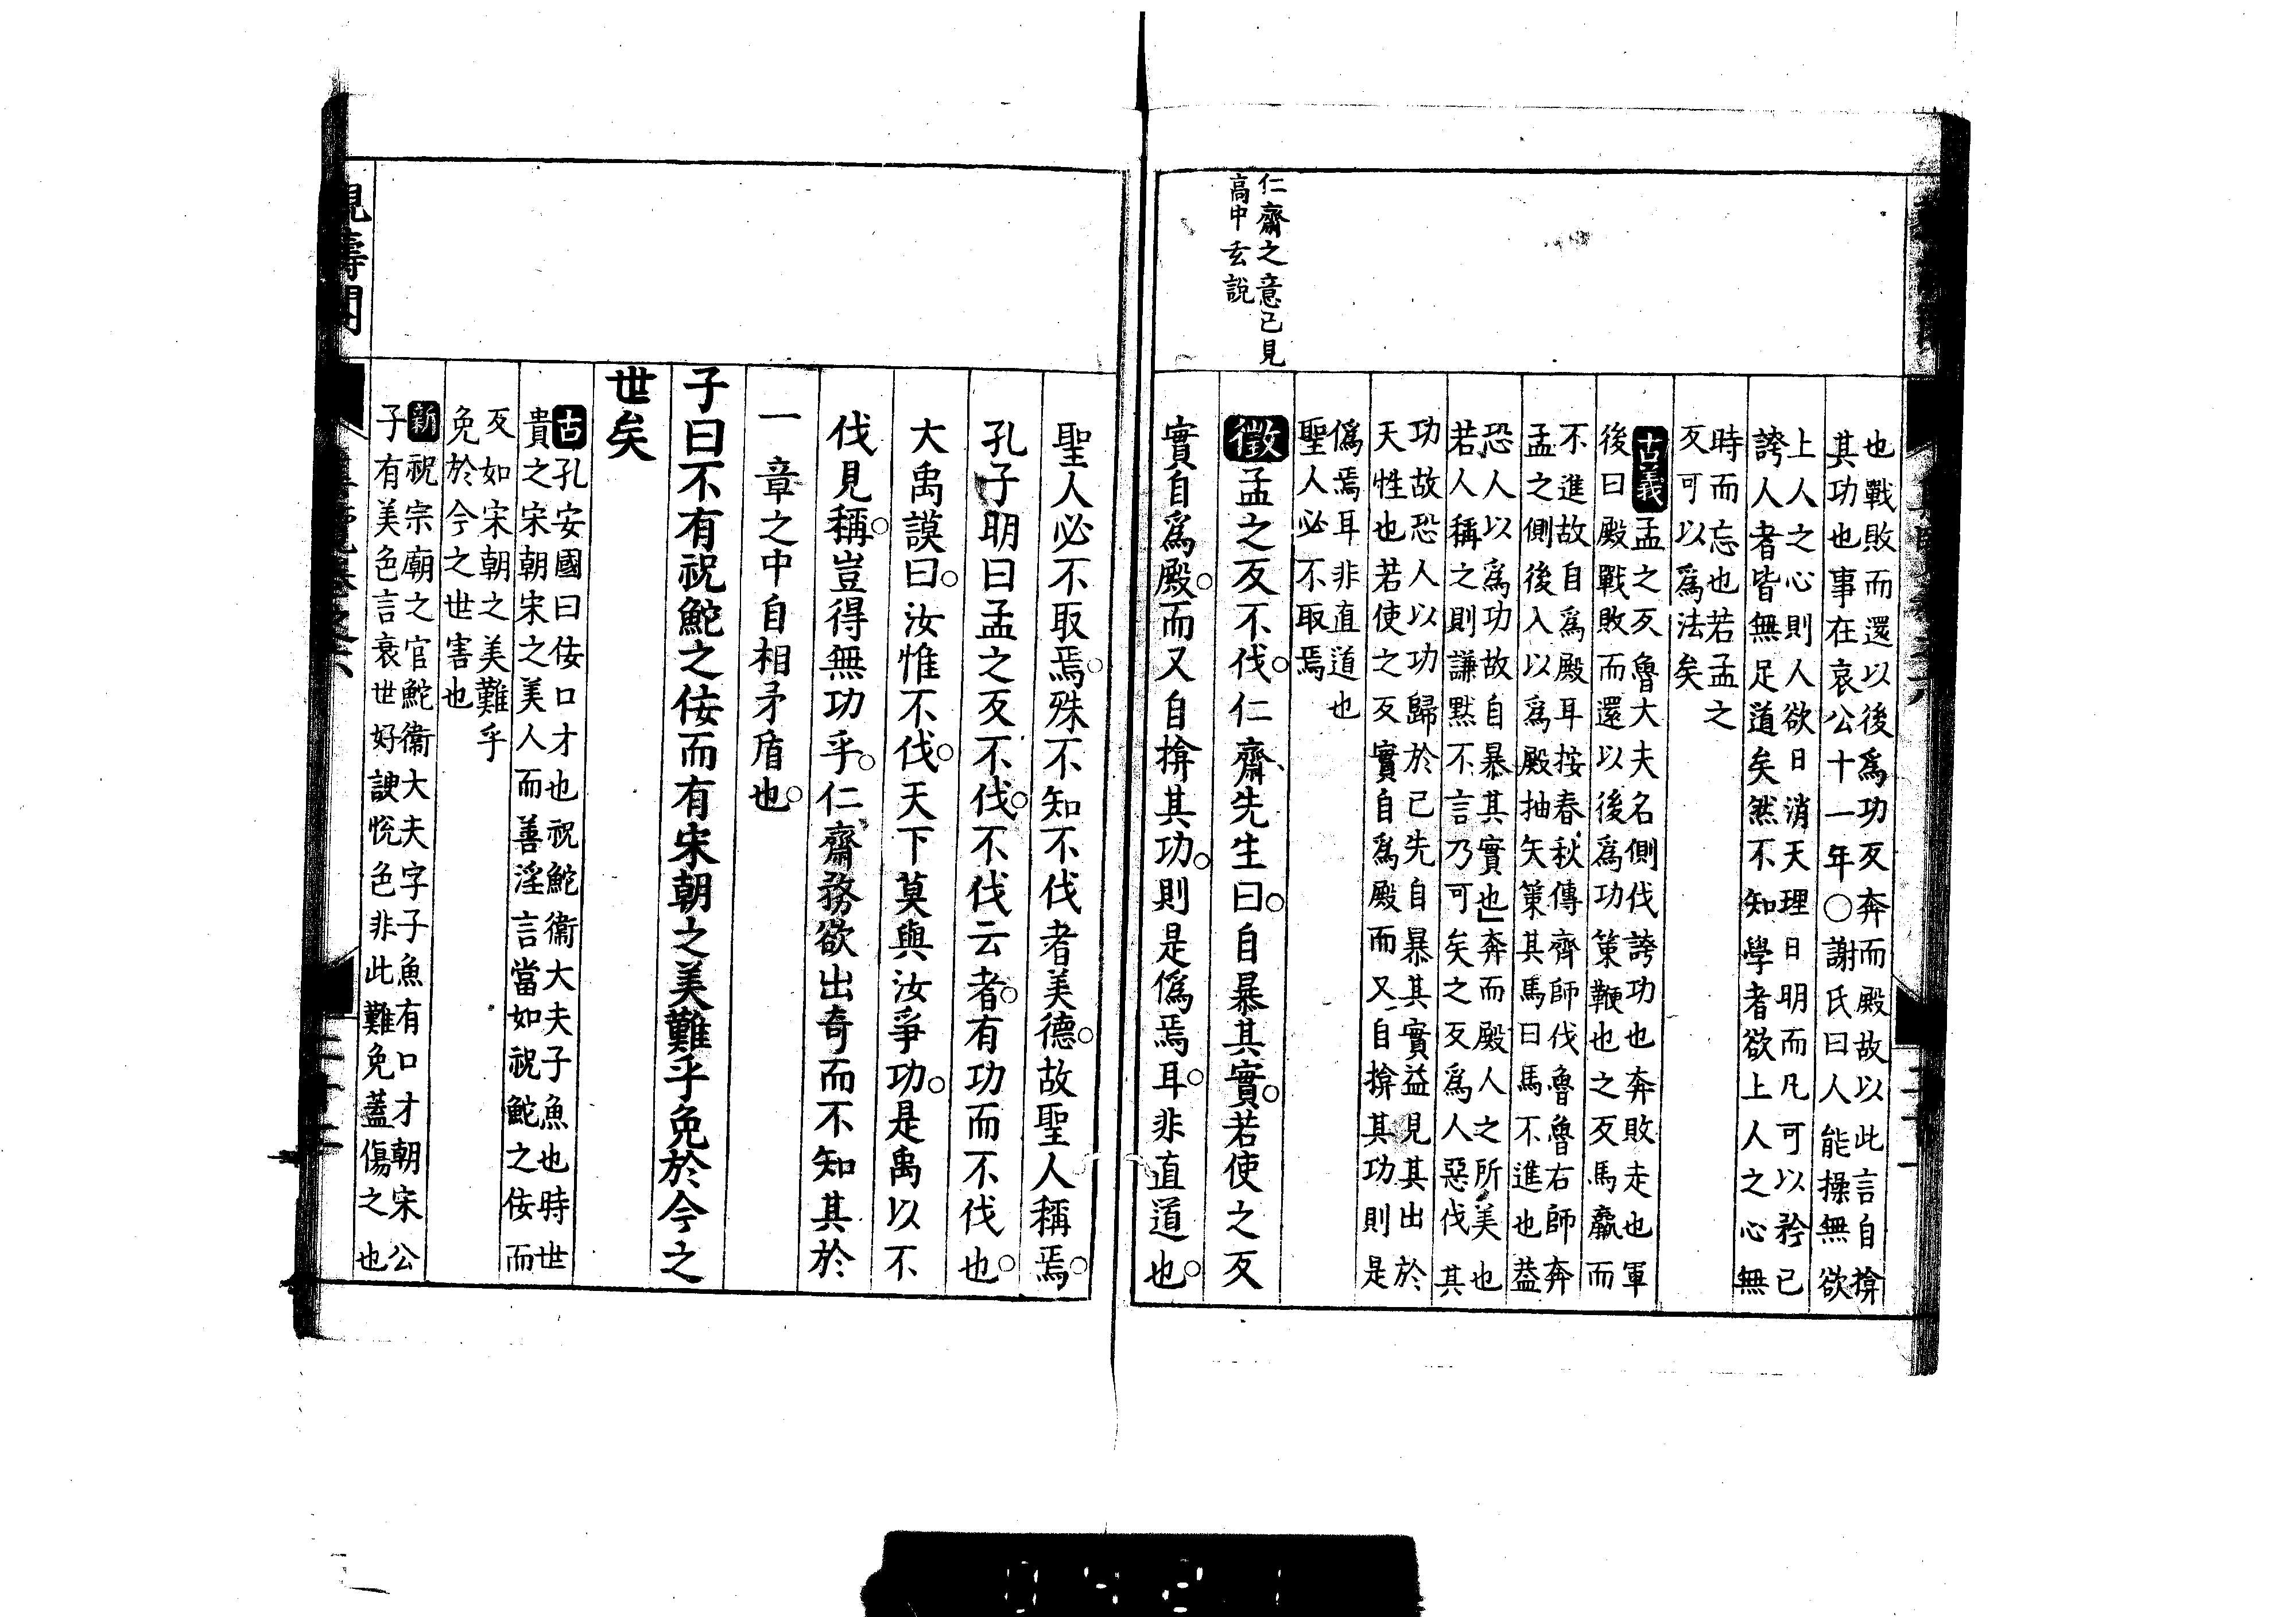 仁齋之意已見
高中玄說
也戰敗而還以後爲功反奔而殿故以此言自揜
其功也事在哀公十一年○謝氏曰人能操無欲
上人之心則人欲日消天理日明而凡可以矜已
誇人者皆無足道矣然不知學者欲上人之心無
時而忘也若孟之
反可以爲法矣
古義孟之反魯大夫名側伐誇功也奔敗走也軍
後曰殿戰敗而還以後爲功策鞭也之反馬羸而
不進故自爲殿耳按春秋傳齊師伐魯魯右師奔
孟之側後入以爲殿抽矢策其馬曰馬不進也葢
恐人以爲功故自暴其實也」奔而殿人之所美也
若人稱之則謙默不言乃可矣之反爲人惡伐其
功故恐人以功歸於已先自暴其實益見其出於
天性也若使之反實自爲殿而又自揜其功則是
僞焉耳非直道也
聖人必不取焉
徵孟之反不伐○仁齋先生曰○自暴其實○若使之反
實自爲殿○而又自揜其功○則是僞焉耳○非直道也○
聖人必不取焉○殊不知不伐者美德○故聖人稱焉○
孔子明曰孟之反不伐○不伐云者○有功而不伐也○
大禹謨曰○汝惟不伐○天下莫與汝爭功○是禹以不
伐見稱○豈得無功乎○仁齋務欲出奇而不知其於
一章之中自相矛盾也○
子曰不有祝鮀之佞而有宋朝之美難乎免於今之
世矣
古孔安國曰佞口才也祝鮀衞大夫子魚也時世
貴之宋朝宋之美人而善淫言當如祝鮀之佞而
反如宋朝之美難乎
免於今之世害也
新祝宗廟之官鮀衞大夫字子魚有口才朝宋公
子有美色言衰世好諛悅色非此難免蓋傷之也